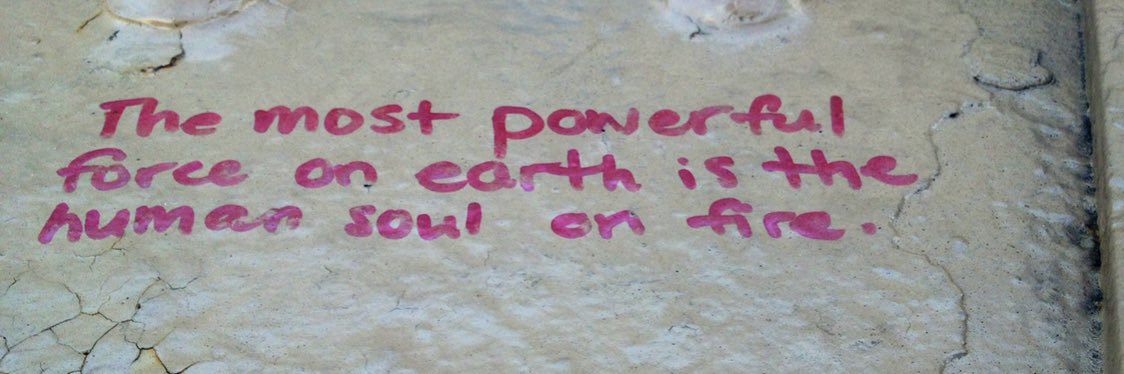 The most powerful
force on earth is the
human soul on fire.